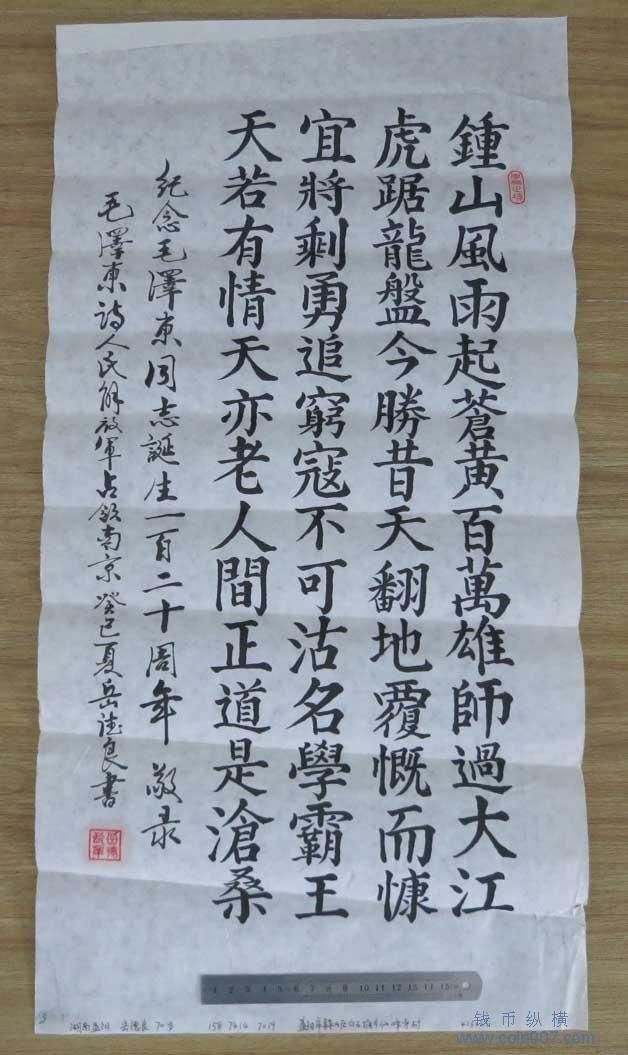 鍾山風雨起蒼黄百萬雄師過大江
虎踞龍盤今勝昔天翻地覆慨而慷
宜將剩勇追窮寇不可沽名學霸王
天若有情天亦老人間正道是滄桑
紀念毛澤東同志誕生一百二十周年 敬录
毛澤東詩人民解放軍占领南京 癸巳夏岳德良書
1 2 3 4 5 6 7 8 9 10 11 12 13 14 15
湖南益阳 岳德良 70岁
钱币纵横
www.coin007.com